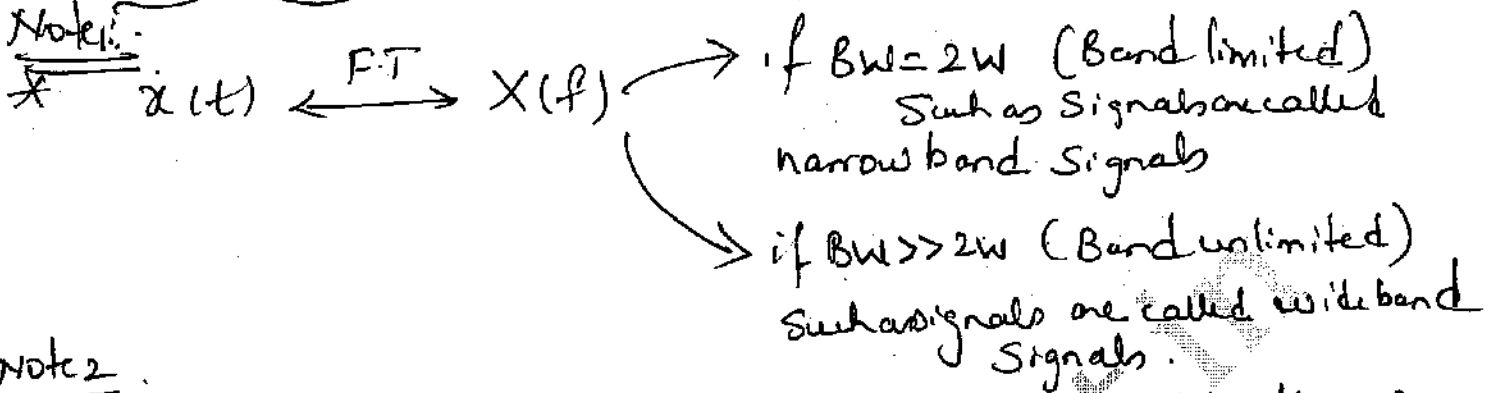 Note1:-
* x(t) ⟷ F.T X(f) → if BW=2W (Band limited)
Such as Signals are called
narrow band Signals
→ if BW>>2W (Band unlimited)
Such as signals are called wide band
Signals.
Note 2